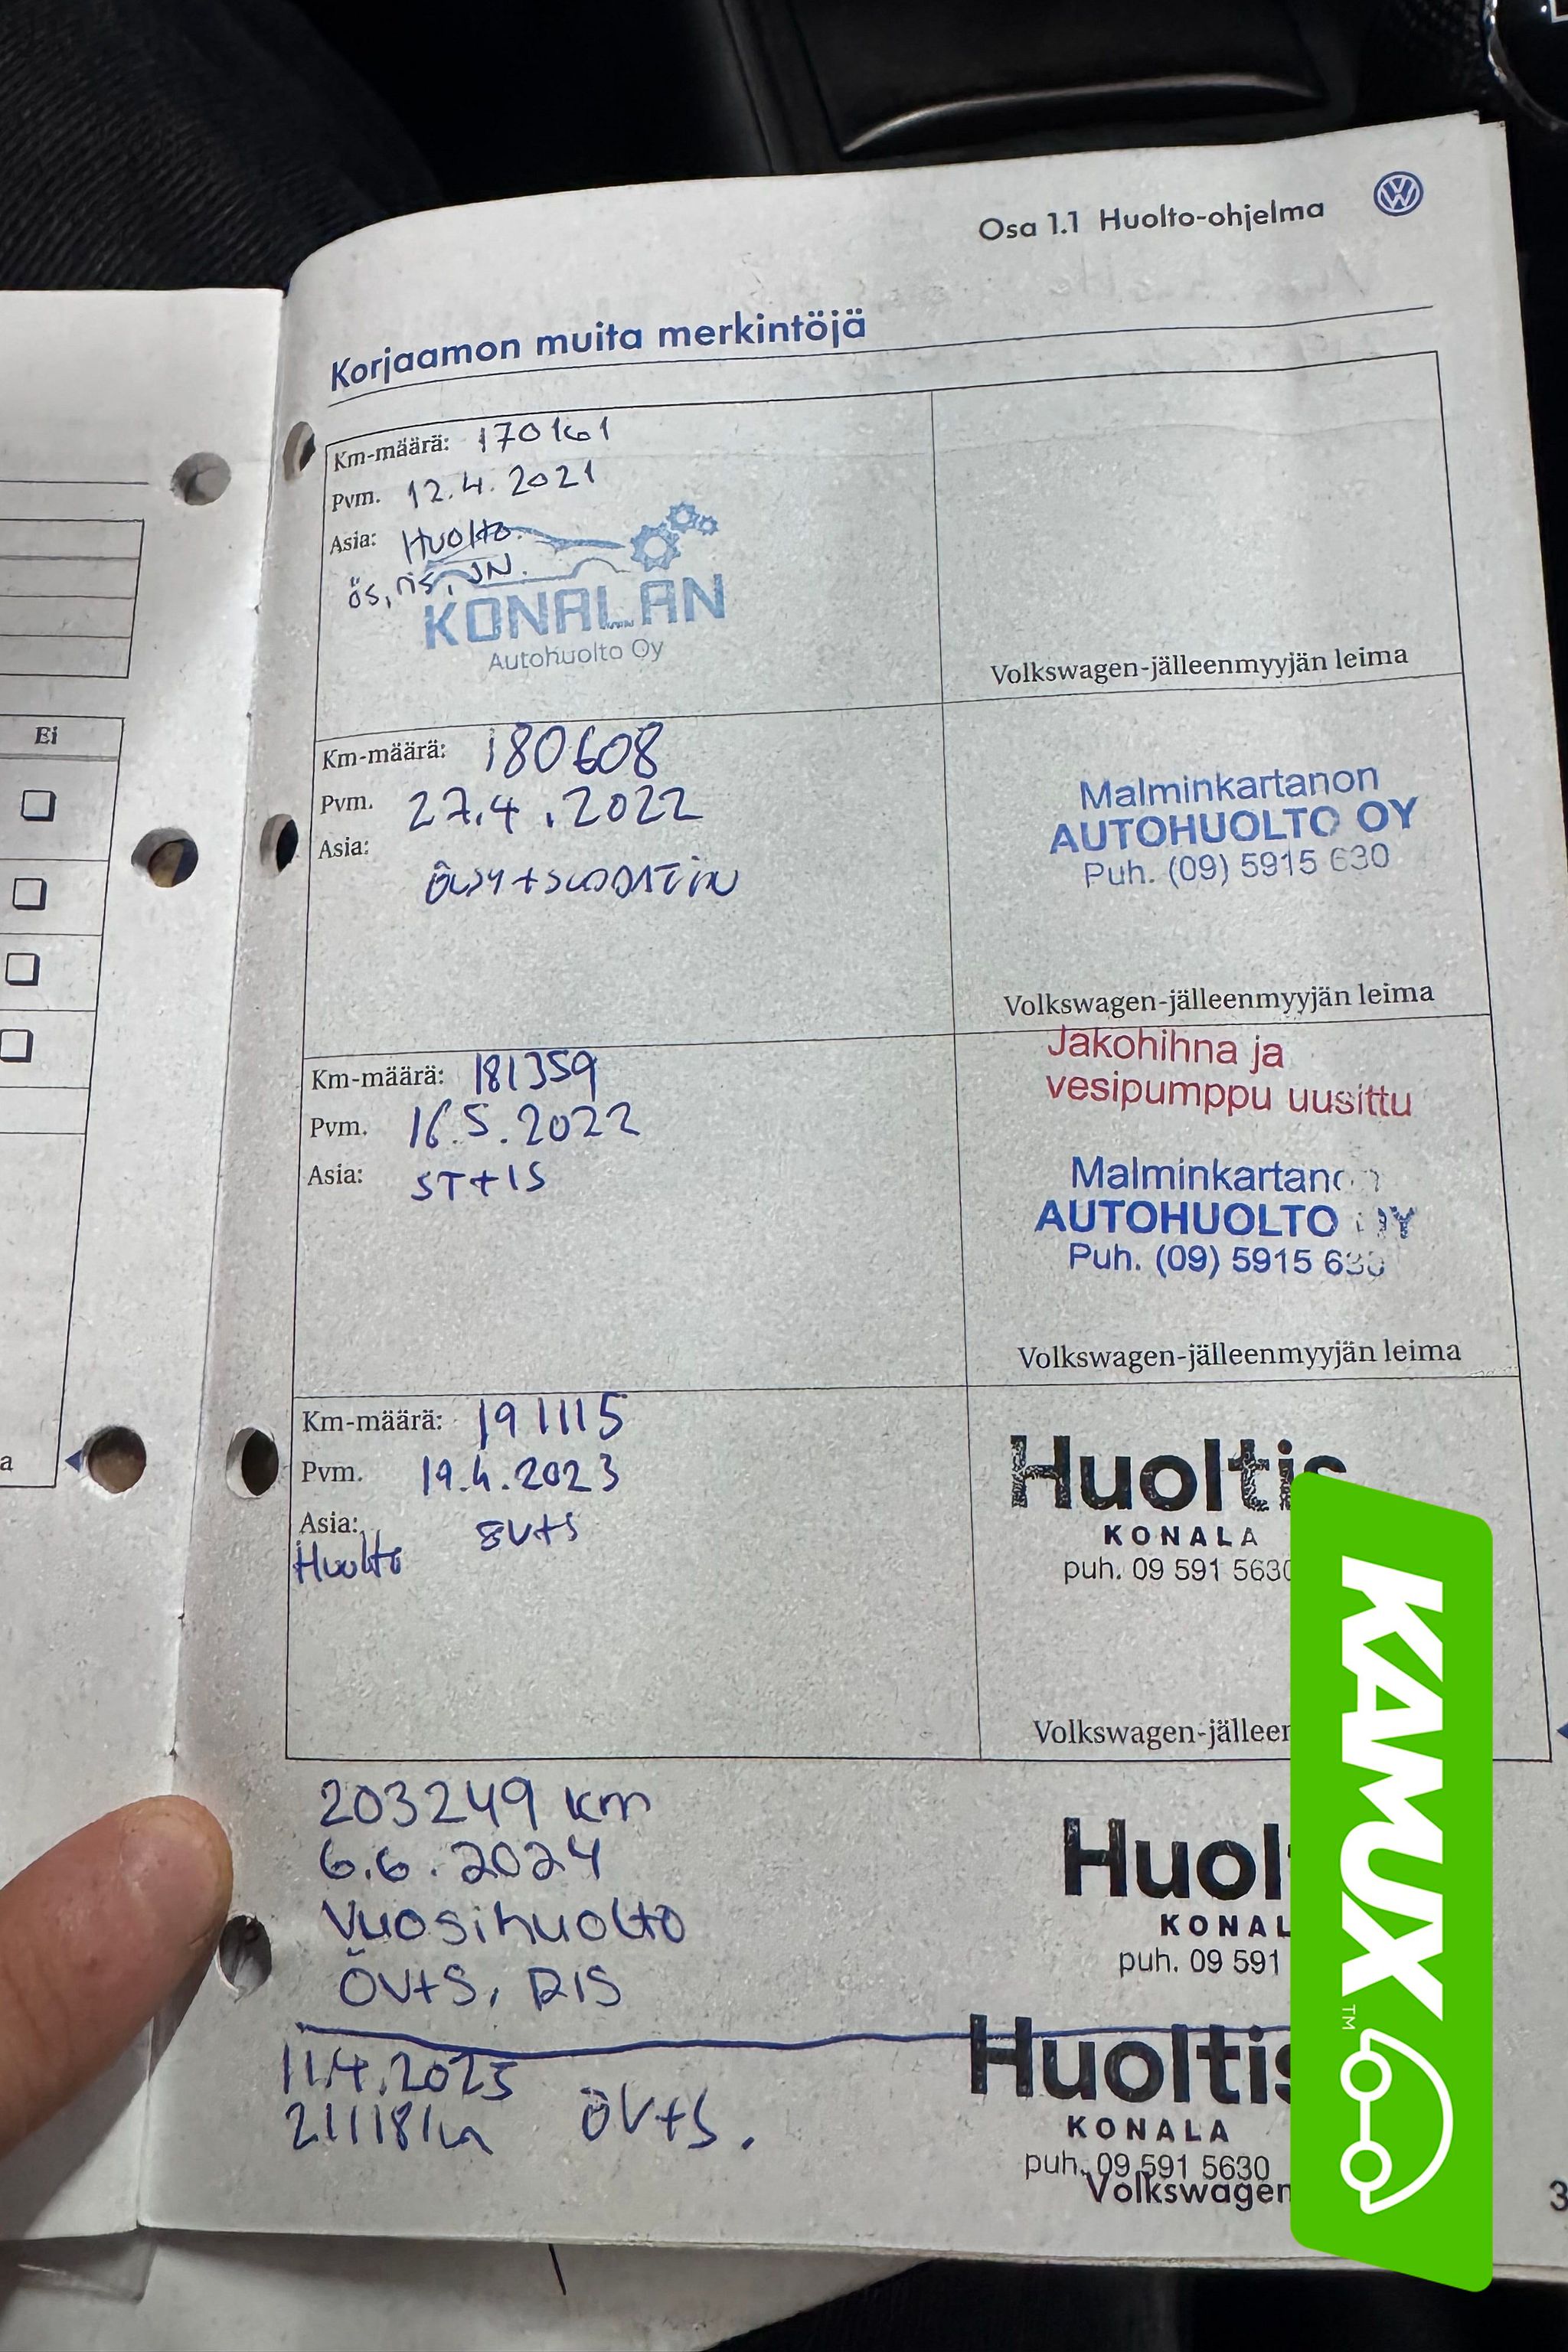 Osa 1.1 Huolto-ohjelma
Korjaamon muita merkintöjä
Km-määrä: 170161
Pvm. 12.4.2021
Asia: Huolto.
ös, ris, JN.
KONALAN
Autohuolto Oy
Volkswagen-jälleenmyyjän leima
Km-määrä: 180608
Pvm. 27.4.2022
Asia:
ÖLJY+SUODATIN
Malminkartanon
AUTOHUOLTO OY
Puh. (09) 5915 630
Volkswagen-jälleenmyyjän leima
Km-määrä: 181359
Pvm. 16.5.2022
Asia: ST+IS
Jakohihna ja
vesipumppu uusittu
Malminkartanon
AUTOHUOLTO OY
Puh. (09) 5915 630
Volkswagen-jälleenmyyjän leima
Km-määrä: 191115
Pvm. 19.4.2023
Asia: ÖV+S
Huolto
Huoltis
KONALA
puh. 09 591 5630
Volkswagen-jälleen
203249 km
6.6.2024
Vuosihuolto
ÖV+S, RIS
Huol
KONAL
puh. 09 591
11.4.2025
ÖV+S.
Huoltis
KONALA
puh. 09 591 5630
Volkswagen
Ei
a
3
KAMUX
TM